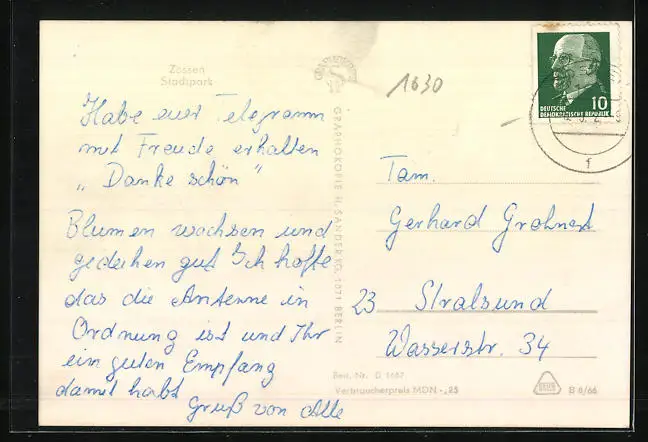 Zossen
Stadtpark
Habe euer Telegramm
mit Freude erhalten
„Danke schön"
Blumen wachsen und
gedeihen gut Ich hoffe
das die Antenne in
Ordnung ist und Ihr
ein guten Empfang
damit habt
Gruß von Alle
GRAPHOKOPIE H. SANDER KG, 1071 BERLIN
1630
10
DEUTSCHE
DEMOKRATISCHE REPUBLIK
f
Fam.
Gerhard Grohnert
23 Stralsund
Wasserstr. 34
Best. Nr. D 1687
Verbraucherpreis MDN -,25
B 8/66